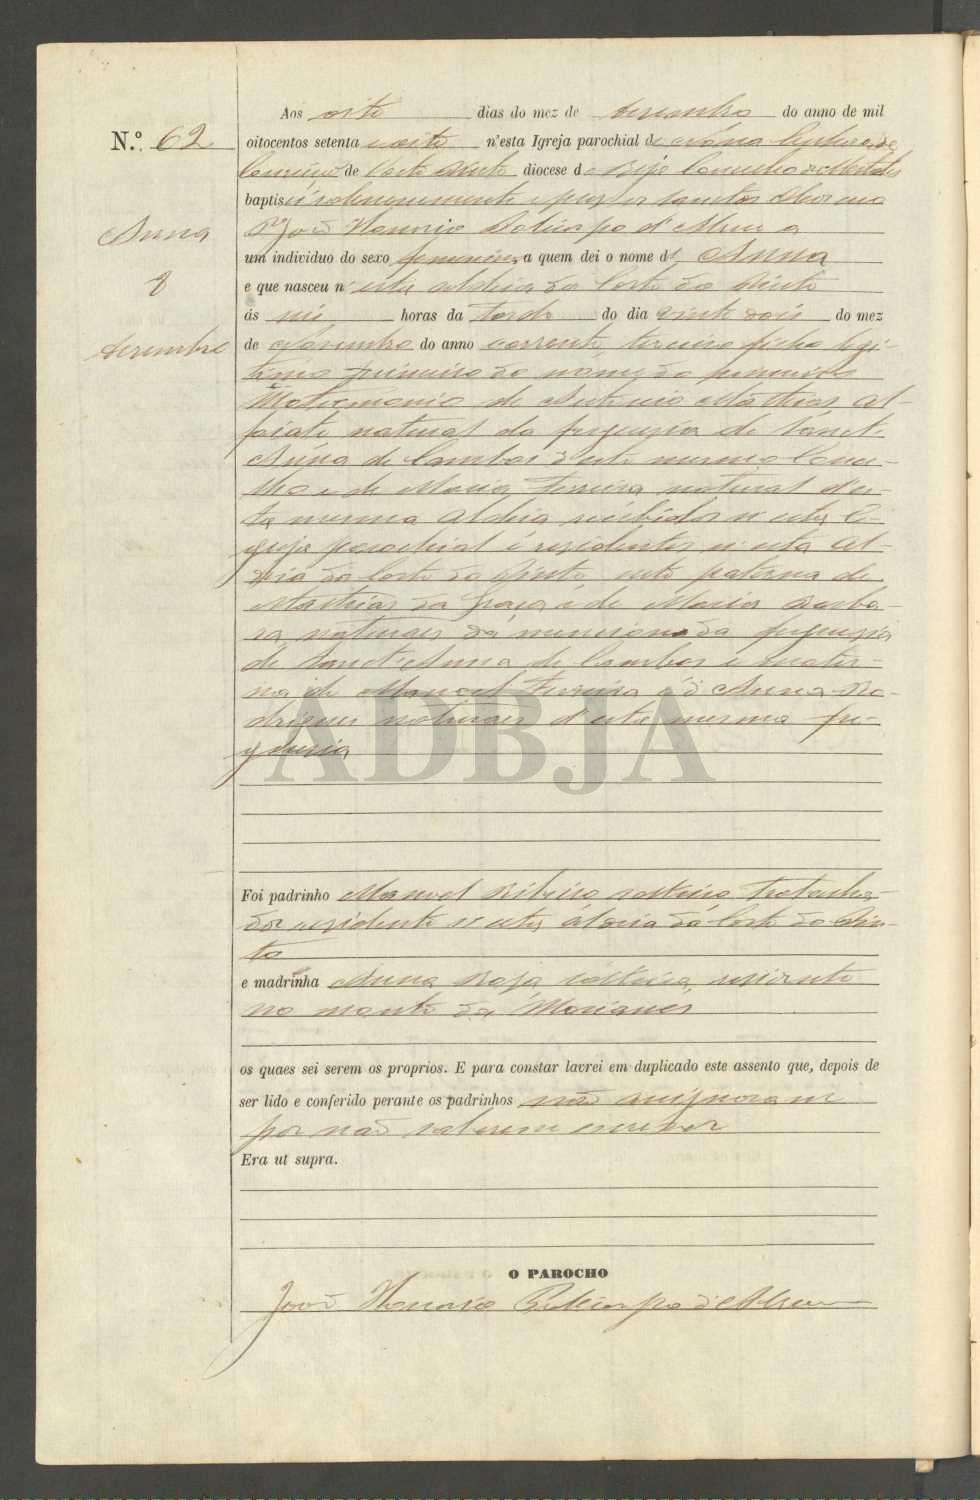 N.º 62
Anna
8
Dezembro
Aos oito dias do mez de dezembro do anno de mil
oitocentos setenta e oito n'esta Igreja parochial de Nóssa Senhora da
Conceicão de Corte Pinto diocese de Beja Concelho de Mertola
baptisei solemnemente e puz os santos Oleos eu
P.e João Honorio Policarpo d'Abreu a
um individuo do sexo femenino, a quem dei o nome de Anna
e que nasceu n'esta aldeia da Corte do Pinto
ás seis horas da Tarde do dia vinte dois do mez
de Novembro do anno corrente, terceiro filho legi-
timo primeiro do nome, do primeiro
Matremonio de Antonio Mathias al-
faiate natural da freguezia de Sanct'
Anna de Cambas d'este mesmo Conce-
lho e de Maria Ferreira natural d'es-
ta mesma aldeia recibidos n'esta I-
greja parochial e rezidentes n'esta al-
deia da Corte do Pinto, neto paterna de
Mathias da Graça e de Maria Barba-
ra, naturaes da mencionada freguezia
de Sanct'Anna de Cambas e mater-
na de Manoel Ferreira e d'Anna Ro-
drigues naturaes d'esta mesma fre-
guezia
ADBJA
Foi padrinho Manoel Ribeiro solteiro Trabalha-
dor rezidente n'esta áldeia da Corte do Pin-
to
e madrinha Anna Roza solteira, rezidente
no monte da Mariannes
os quaes sei serem os proprios. E para constar lavrei em duplicado este assento que, depois de
ser lido e conferido perante os padrinhos não assignaram
por não saberem escrever
Era ut supra.
O PAROCHO
João Honorio Policarpo d'Abreu